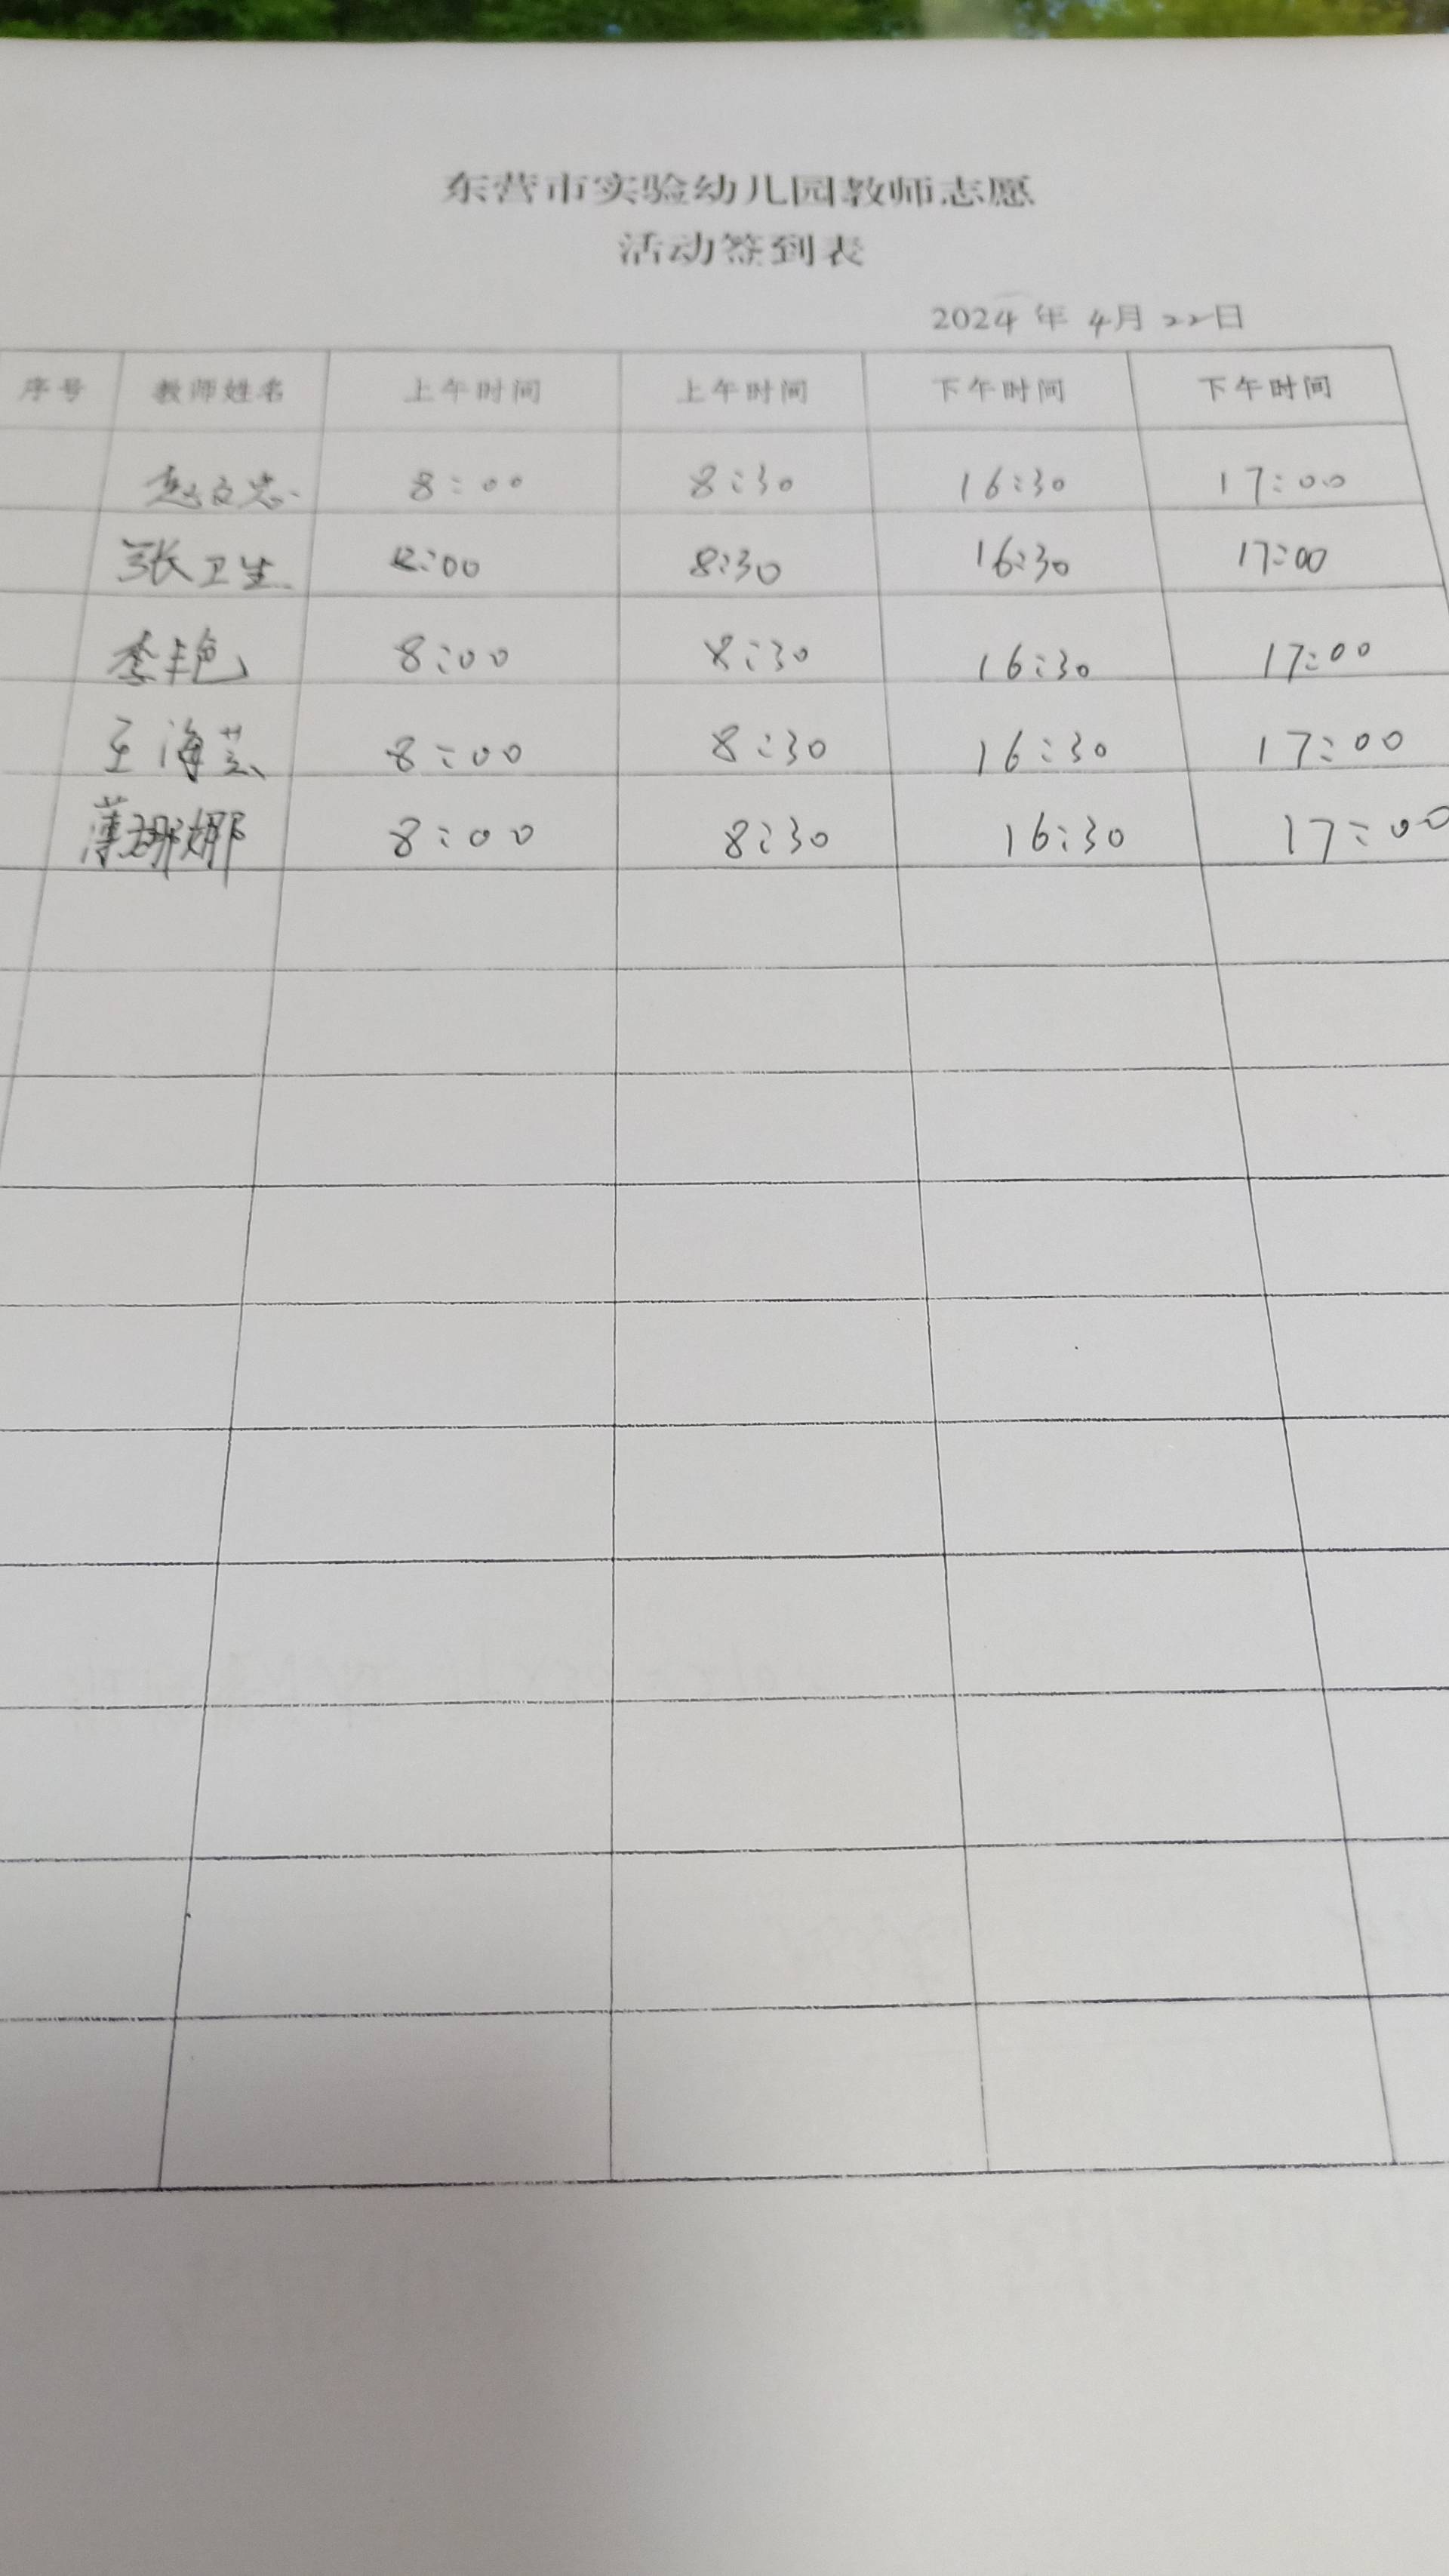 东营市实验幼儿园教师志愿
活动签到表
2024 年 4月 22日
序号 教师姓名 上午时间 上午时间 下午时间 下午时间
赵文忠 8:00 8:30 16:30 17:00
张卫生 8:00 8:30 16:30 17:00
李艳 8:00 8:30 16:30 17:00
王海芸 8:00 8:30 16:30 17:00
薄娜娜 8:00 8:30 16:30 17:00